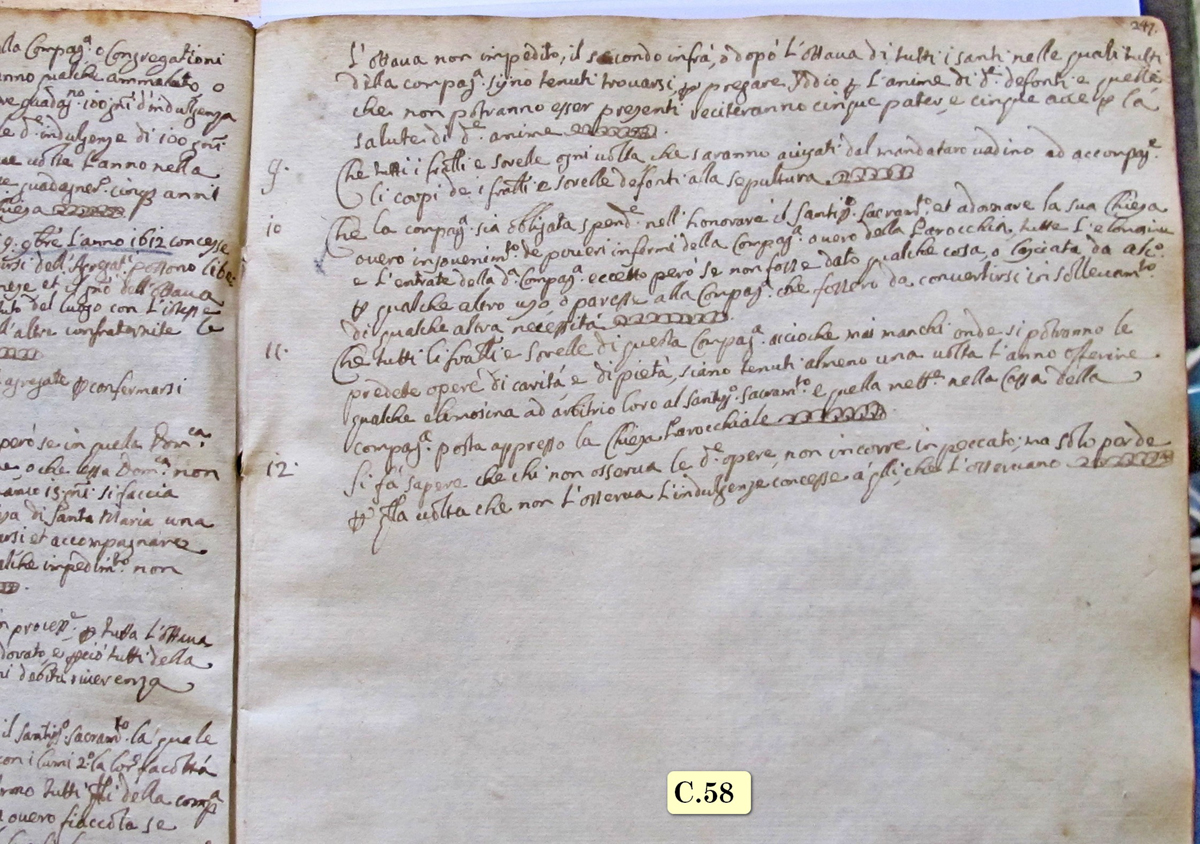 lla Compag.ª o Congregationi
anno qualche ammalato, o
100 gni d'indulgenza
e d.e indulgenze di 100 gni
ue uolte l'anno nella
9. 9bre L'anno 1612 concesse
possono libe
nese et il gno dell'ottaua
del luogo con l'istesse
l'altre confraternite le
agregate p confermarsi
però se in quella Dom.ca
o che essa Dom.ca non
si faccia
di Santa Maria una
et accompagnare
impedim.to non
p tutta L'ottaua
tutti della
debita riuerenza
il Santiss.o Sacram.to la quale
con i lumi 2.o la lor facoltà
tutti della comp.ª
ouero fiaccola se
247.
l'ottaua non impedito, il secondo infrà, ò dopò l'ottaua di tutti i santi nelle quali tutti
della compag.ª sijno tenuti trouarsi p pregare Iddio p L'anime di d.i defonti e quelli
che non potranno esser presenti reciteranno cinque pater, e cinque aue p la
salute di d.e anime
9. Che tutti i fratlli e sorelle ogni uolta che saranno auisati dal mandataro uadino ad accompag.e
li corpi de i fratlli e sorelle defonti alla sepultura
10 Che la compag.ª sia obligata spend.e nell'honorare il Santiss.o Sacram.to et adornare la sua Chiesa
ouero in souenim.to de poueri infermi della Compag.ª ouero della Parocchia tutte l'elemosine
e L'entrate della d.ª Compag.ª eccetto però se non fosse dato qualche cosa, o lasciata da alc.o
p qualche altro uso ò paresse alla Compag.ª che fossero da conuertirsi in solleuam.to
di qualche altra necessità
11. Che tutti li fratlli e Sorelle di questa Compag.ª acciochè mai manchi onde si potranno le
predete opere di carità e di pietà, siano tenuti almeno una uolta l'anno offerire
qualche elemosina ad arbitrio loro al Santiss.o Sacram.to e quella mett.e nella Cassa della
compag.ª posta appresso la Chiesa Parocchiale
12. Si fà sapere che chi non osserua le d.e opere, non incorre in peccato, ma solo perde
p qlla uolta che non L'osserua L'indulgenze concesse à qlli, che L'osseruano
C.58